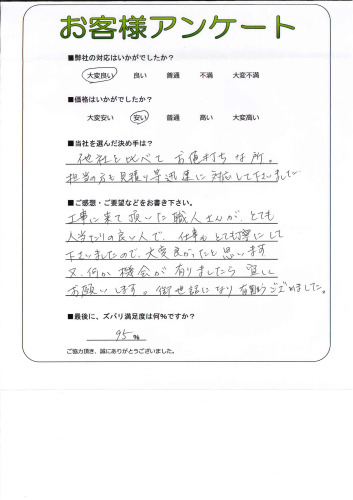 お客様アンケート
■弊社の対応はいかがでしたか?
大変良い 良い 普通 不満 大変不満
■価格はいかがでしたか?
大変安い 安い 普通 高い 大変高い
■当社を選んだ決め手は?
他社と比べてお値打ちな所。
担当の方も見積り等迅速に対応して下さいました
■ご感想・ご要望などをお書き下さい。
工事に来て頂いた職人さんが、とても
人当たりの良い人で、仕事もとても丁寧にして
下さいましたので、大変良かったと思います
又、何か機会が有りましたら宜しく
お願いします。御世話になり有難うございました。
■最後に、ズバリ満足度は何%ですか?
95 %
ご協力頂き、誠にありがとうございました。